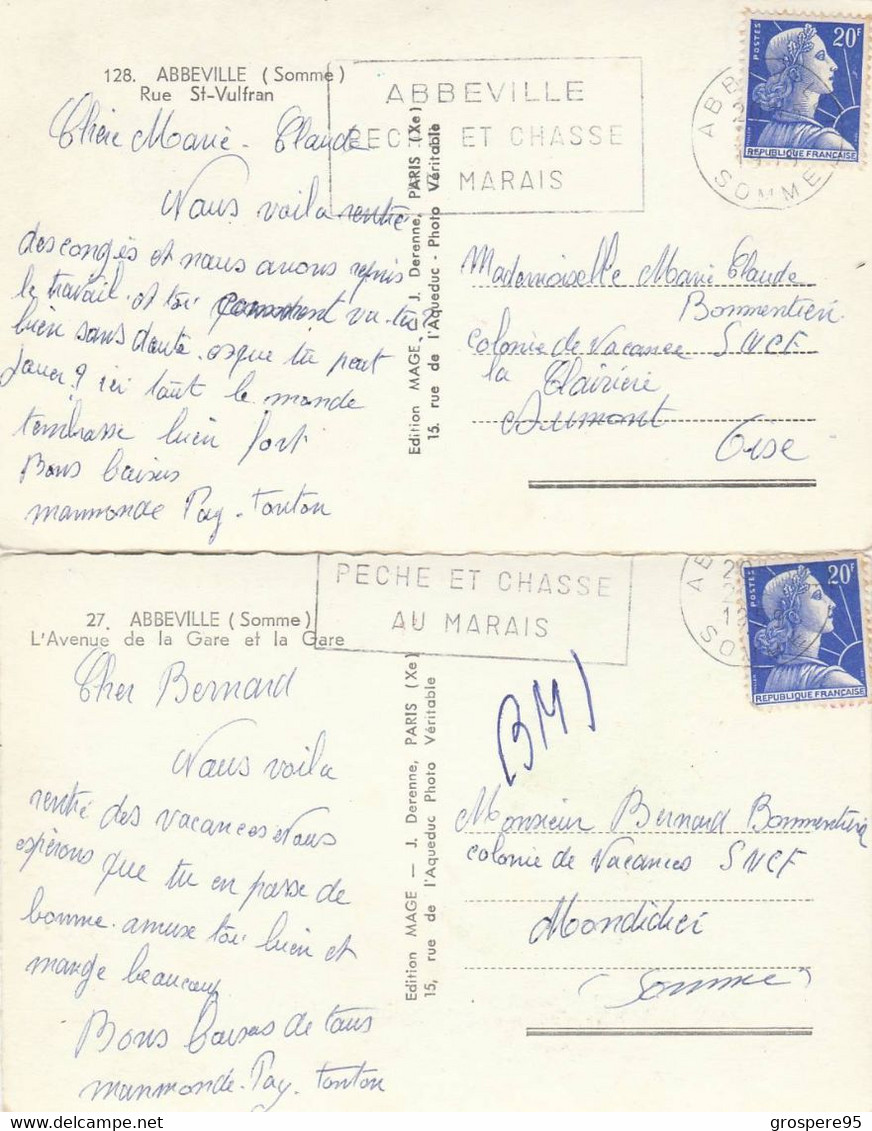 128. ABBEVILLE (Somme)
Rue St-Vulfran
ABBEVILLE
PECHE ET CHASSE
MARAIS
POSTES
20F
REPUBLIQUE FRANÇAISE
ABB
SOMME
Chère Marie-Claude
Nous voila rentré
des congés et nous avons repris
le travail. et toi comment va-tu?
bien sans doute. esque tu peut
jouer? ici tout le monde
tembrasse bien fort
Bons baisers
manmonde Pay-tonton
Edition MAGE — J. Derenne, PARIS (Xe)
15. rue de l'Aqueduc - Photo Véritable
Mademoiselle Marie Claude
Bommentieri
colonie de Vacance SNCF
la Clairiere
Aumont
Oise
PECHE ET CHASSE
AU MARAIS
POSTES
20F
REPUBLIQUE FRANÇAISE
27. ABBEVILLE (Somme)
L'Avenue de la Gare et la Gare
Cher Bernard
Nous voila
rentré des vacances Nous
espérons que tu en passe de
bonne. amuse toi bien et
mange beaucoup
Bons baisers de tous
manmonde-Pay. tonton
Edition MAGE — J. Derenne, PARIS (Xe)
15, rue de l'Aqueduc Photo Véritable
BMJ
Monsieur Bernard Bommentiere
colonie de Vacances SNCF
Mondidier
Somme
grospere95